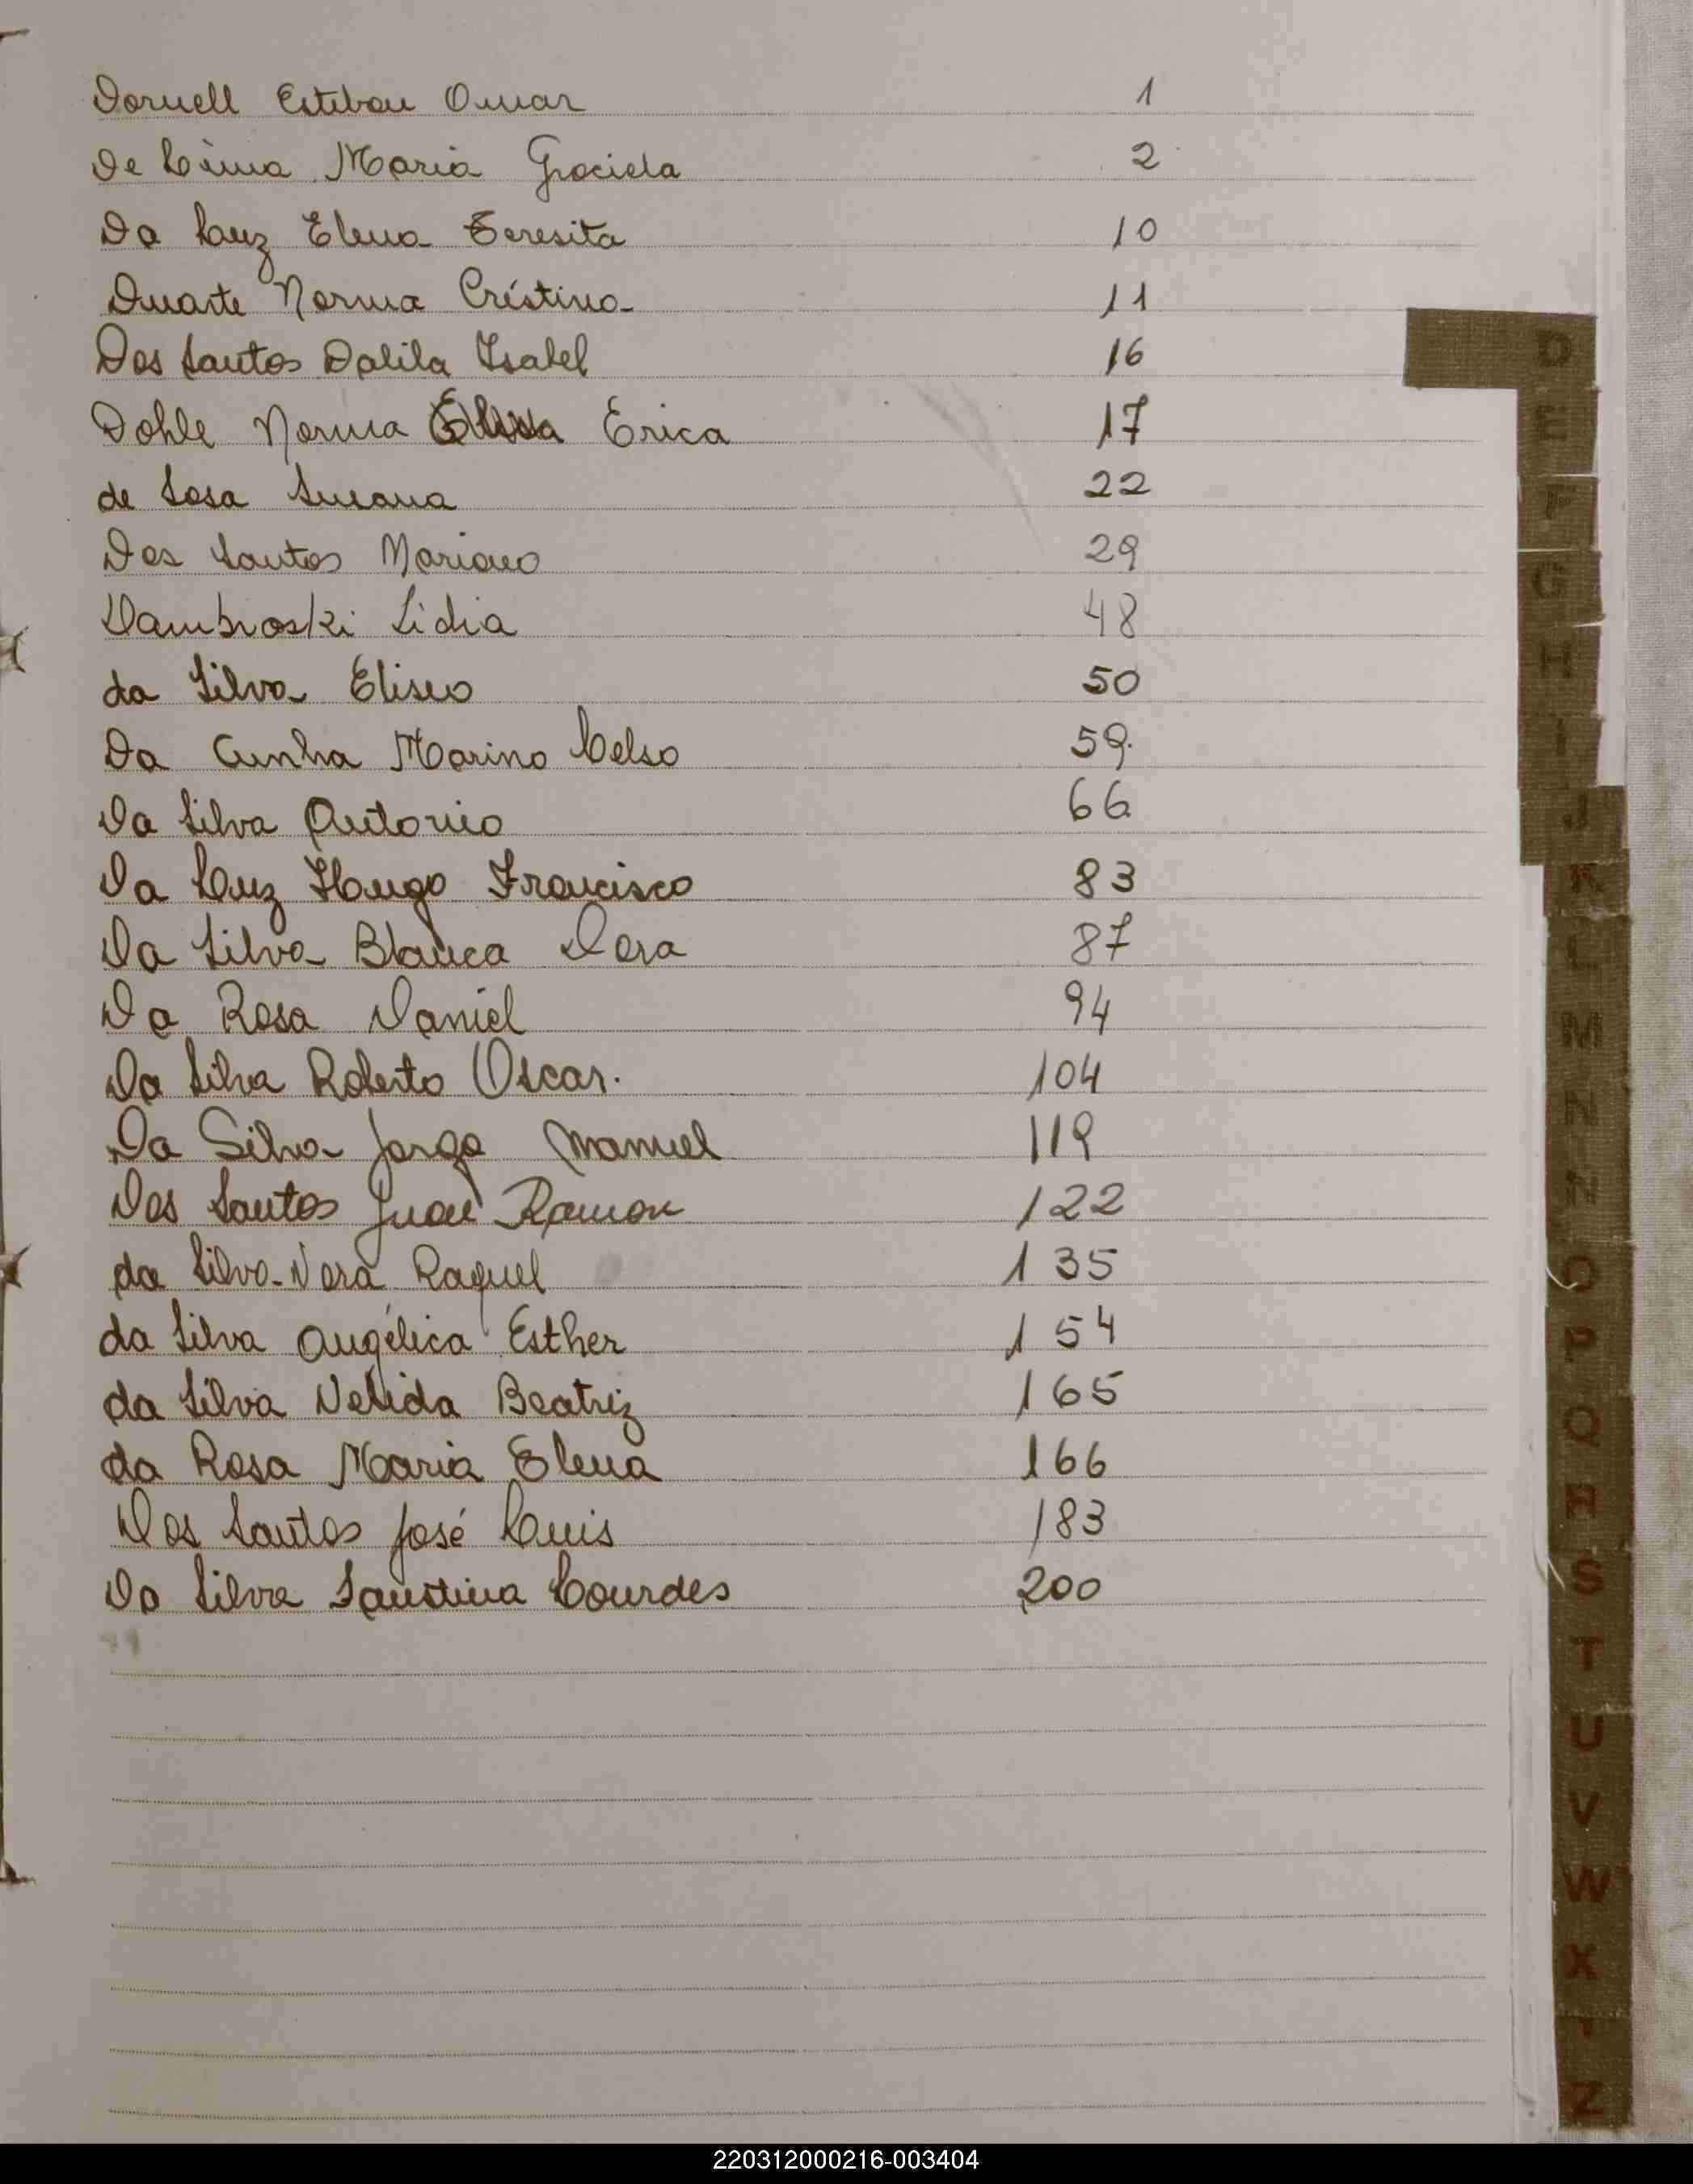 Dornell Esteban Omar 1
De Lima Maria Graciela 2
Da Luz Elena Teresita 10
Duarte Norma Cristina 11
Dos Santos Dalila Isabel 16
Dohle Norma Erica 17
de Sosa Susana 22
Dos Santos Mariano 29
Dambroski Lidia 48
da Silva Eliseo 50
Da Cunha Marino Celso 59.
Da Silva Antonio 66
Da Luz Hugo Francisco 83
Da Silva Blanca Dora 87
Da Rosa Daniel 94
Da Silva Roberto Oscar. 104
Da Silva Jorge Manuel 119
Dos Santos Juan Ramon 122
da Silva Nora Raquel 135
da Silva Angélica Esther 154
da Silva Nelida Beatriz 165
da Rosa Maria Elena 166
Dos Santos José Luis 183
Da Silva Faustina Lourdes 200
D
E
F
G
H
I
J
K
L
M
N
Ñ
O
P
Q
R
S
T
U
V
W
X
Y
Z
220312000216-003404